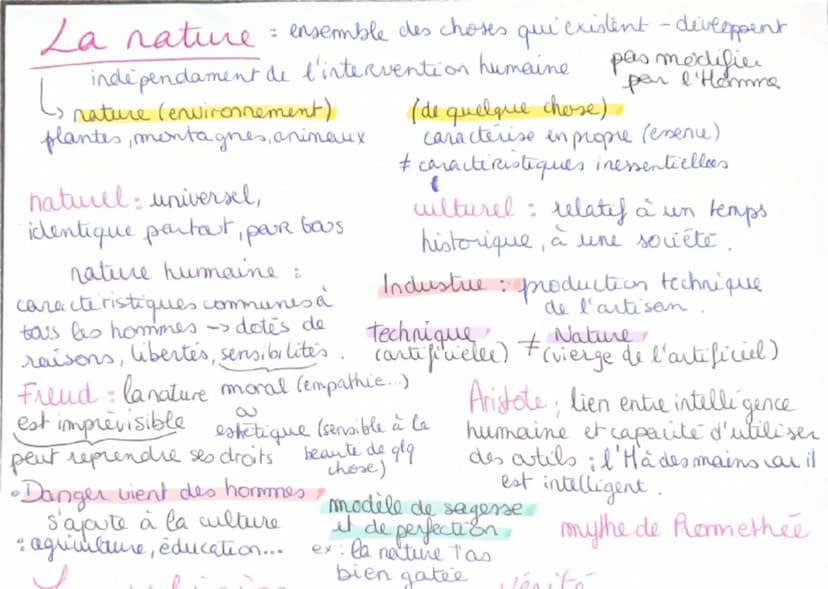 La nature : ensemble des choses qui existent - developpent
indépendament de l'intervention humaine
pas modifier
par l'Homme
↳ nature (environnement)
plantes, montagnes, animaux
(de quelque chose)
caractérise en propre (essence)
≠ caractéristiques inessentielles
naturel : universel,
identique partout, par tous
culturel : relatif à un temps
historique, à une société.
nature humaine :
caractéristiques communes à
tous les hommes -> dotés de
raisons, libertés, sensibilités.
moral (empathie...)
ou
esthétique (sensible à la
beauté de qlq
chose)
Industrie : production technique
de l'artisan.
Technique ≠ Nature
(artificielle) (vierge de l'artificiel)
Freud : la nature
est imprévisible
peut reprendre ses droits
Aristote : lien entre intelligence
humaine et capacité d'utiliser
des outils : l'H à des mains car il
est intelligent.
• Danger vient des hommes
s'ajoute à la culture
: agriculture, éducation...
modèle de sagesse
et de perfection
ex : la nature t'as
bien gatée
mythe de Promethée
vérité